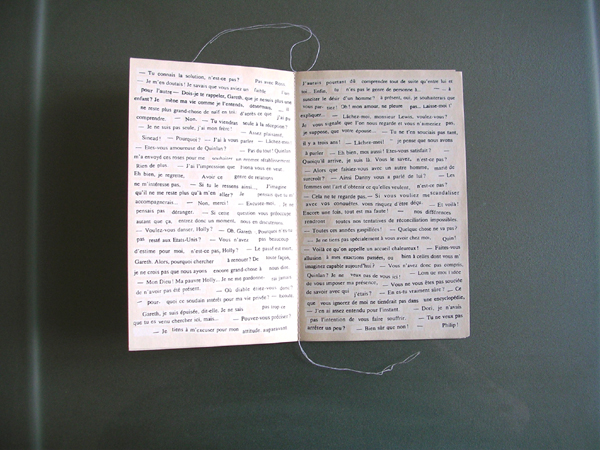 — Tu connais la solution, n'est-ce pas? Pas avec Ross.
— Je m'en doutais! Je savais que vous aviez un faible
pour l'autre — Dois-je te rappeler, Gareth, que je ne suis plus une
enfant? Je mène ma vie comme je l'entends, désormais,
ne reste plus grand-chose de naïf en toi d'après ce que j'ai pu
comprendre. — Non. — Tu viendras seule à la réception?
— Je ne suis pas seule, j'ai mon frère! — Assez plaisanté,
Sinead! — Pourquoi? — J'ai à vous parler — Lâchez-moi!
— Etes-vous amoureuse de Quinlan? — Pas du tout! Quinlan
m'a envoyé ces roses pour me souhaiter un prompt rétablissement
Rien de plus. — J'ai l'impression que Emma vous en veut.
Eh bien, je regrette. Avoir ce genre de relations
ne m'intéresse pas. — Si tu le ressens ainsi..., j'imagine
qu'il ne me reste plus qu'à m'en aller? Je pensais que tu m'
accompagnerais... — Non, merci! — Excusez-moi. Je ne
pensais pas déranger. — Si cette question vous préoccupe
autant que ça, entrez donc un moment, nous en discuterons.
— Voulez-vous danser, Holly? — Oh, Gareth. Pourquoi n'es-tu
pas resté aux Etats-Unis? — Vous n'avez pas beaucoup
d'estime pour moi, n'est-ce pas, Holly? — Le passé est mort,
Gareth. Alors, pourquoi chercher à renouer? De toute façon,
je ne crois pas que nous ayons encore grand-chose à nous dire.
— Mon Dieu! Ma pauvre Holly... Je ne me pardonnerai jamais
de n'avoir pas été présent. — Où diable étiez-vous
— pour quoi ce soudain intérêt pour ma vie privée? —
Gareth, je suis épuisée, dit-elle. Je ne sais pas trop ce
que tu es venu chercher ici, mais... — Pouvez-vous préciser?
— Je tiens à m'excuser pour mon attitude, auparavant
J'aurais pourtant dû comprendre tout de suite qu'entre lui et
toi... Enfin, tu n'es pas le genre de personne à... — à
susciter le désir d'un homme? à présent, oui, je souhaiterais que
vous partiez! Oh! mon amour, ne pleure pas. Laisse-moi t'
expliquer... — Lâchez-moi, monsieur Lewin, voulez-vous?
Je vous signale que l'on nous regarde et vous n'aimeriez pas,
je suppose, que votre épouse... — Tu ne t'en souciais pas tant,
il y a trois ans! — Lâchez-moi! — je pense que nous avons
à parler — Eh bien, moi aussi! Etes-vous satisfait? —
Quoiqu'il arrive, je suis là. Vous le savez, n'est-ce pas?
— Alors que faisiez-vous avec un autre homme, marié de
surcroît? — Ainsi Danny vous a parlé de lui? — Les
femmes ont l'art d'obtenir ce qu'elles veulent, n'est-ce pas?
— Cela ne te regarde pas. — Si vous vouliez me scandaliser
avec vos conquêtes, vous risquez d'être déçu. — Et voilà!
Encore une fois, tout est ma faute! — nos différences
rendront toutes nos tentatives de réconciliation impossibles.
— Toutes ces années gaspillées! — Quelque chose ne va pas?
— Je ne tiens pas spécialement à vous avoir chez moi, Quin!
— Voilà ce qu'on appelle un accueil chaleureux! — Faites-vous
allusion à mes exactions passées, ou bien à celles dont vous m'
imaginez capable aujourd'hui? — Vous n'avez donc pas compris,
Quinlan? Je ne veux pas de vous ici! — Loin de moi l'idée
de vous imposer ma présence, — Vous ne vous êtes pas souciée
de savoir avec qui j'étais? — En es-tu vraiment sûre? — Ce
que vous ignorez de moi ne tiendrait pas dans une encyclopédie,
— J'en ai assez entendu pour l'instant. — Dori, je n'avais
pas l'intention de vous faire souffrir. — Tu ne vous pas
arrêter un peu? — Bien sûr que non! — Philip!